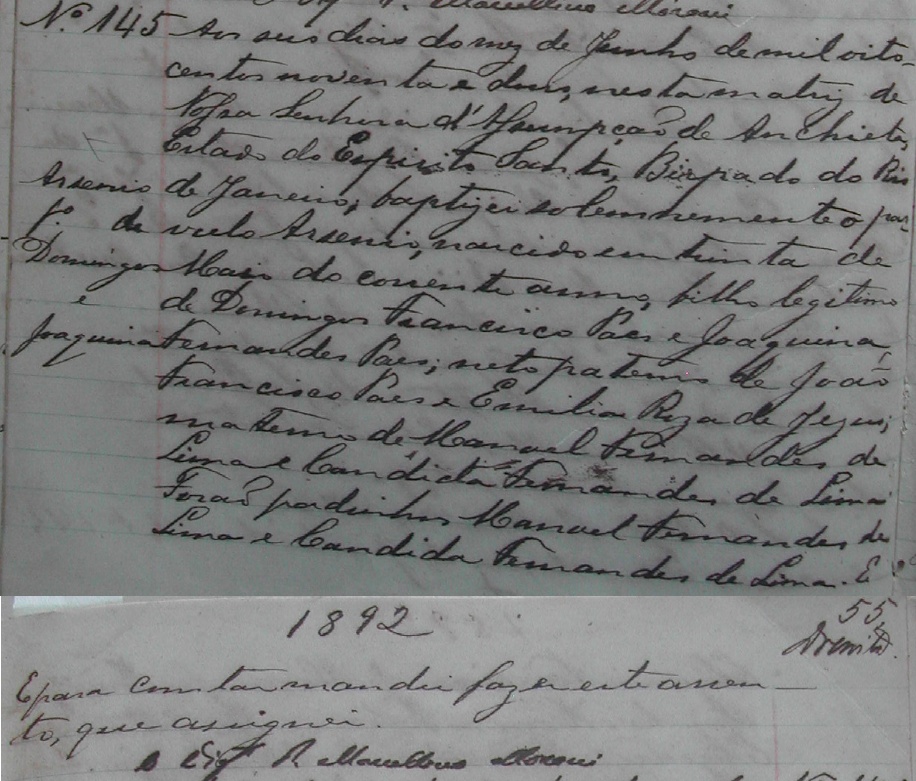 Marcellino Moroni
Nº 145 Aos seis dias do mez de Junho de mil oito-
centos noventa e dous, nesta matriz de
Nossa Senhora d'Assumpção de Anchieta,
Estado do Espirito Santo, Bispado do Rio
Arsenio de Janeiro, baptizei solemnemente o par-
fº de vulo Arsenio, nascido em trinta de
Domingos Maio do corrente anno, filho legitimo
e de Domingos Francisco Paes e Joaquina
Joaquina Fernandes Paes; neto paterno de João
Francisco Paes e Emilia Roza de Jezus;
materno de Manoel Fernandes de
Lima e Candida Fernandes de Lima.
Forão padinhos Manoel Fernandes de
Lima e Candida Fernandes de Lima. E
1892
55
E para constar mandei fazer este assen-
to, que assignei.
O Vigº P. Marcellino Moroni